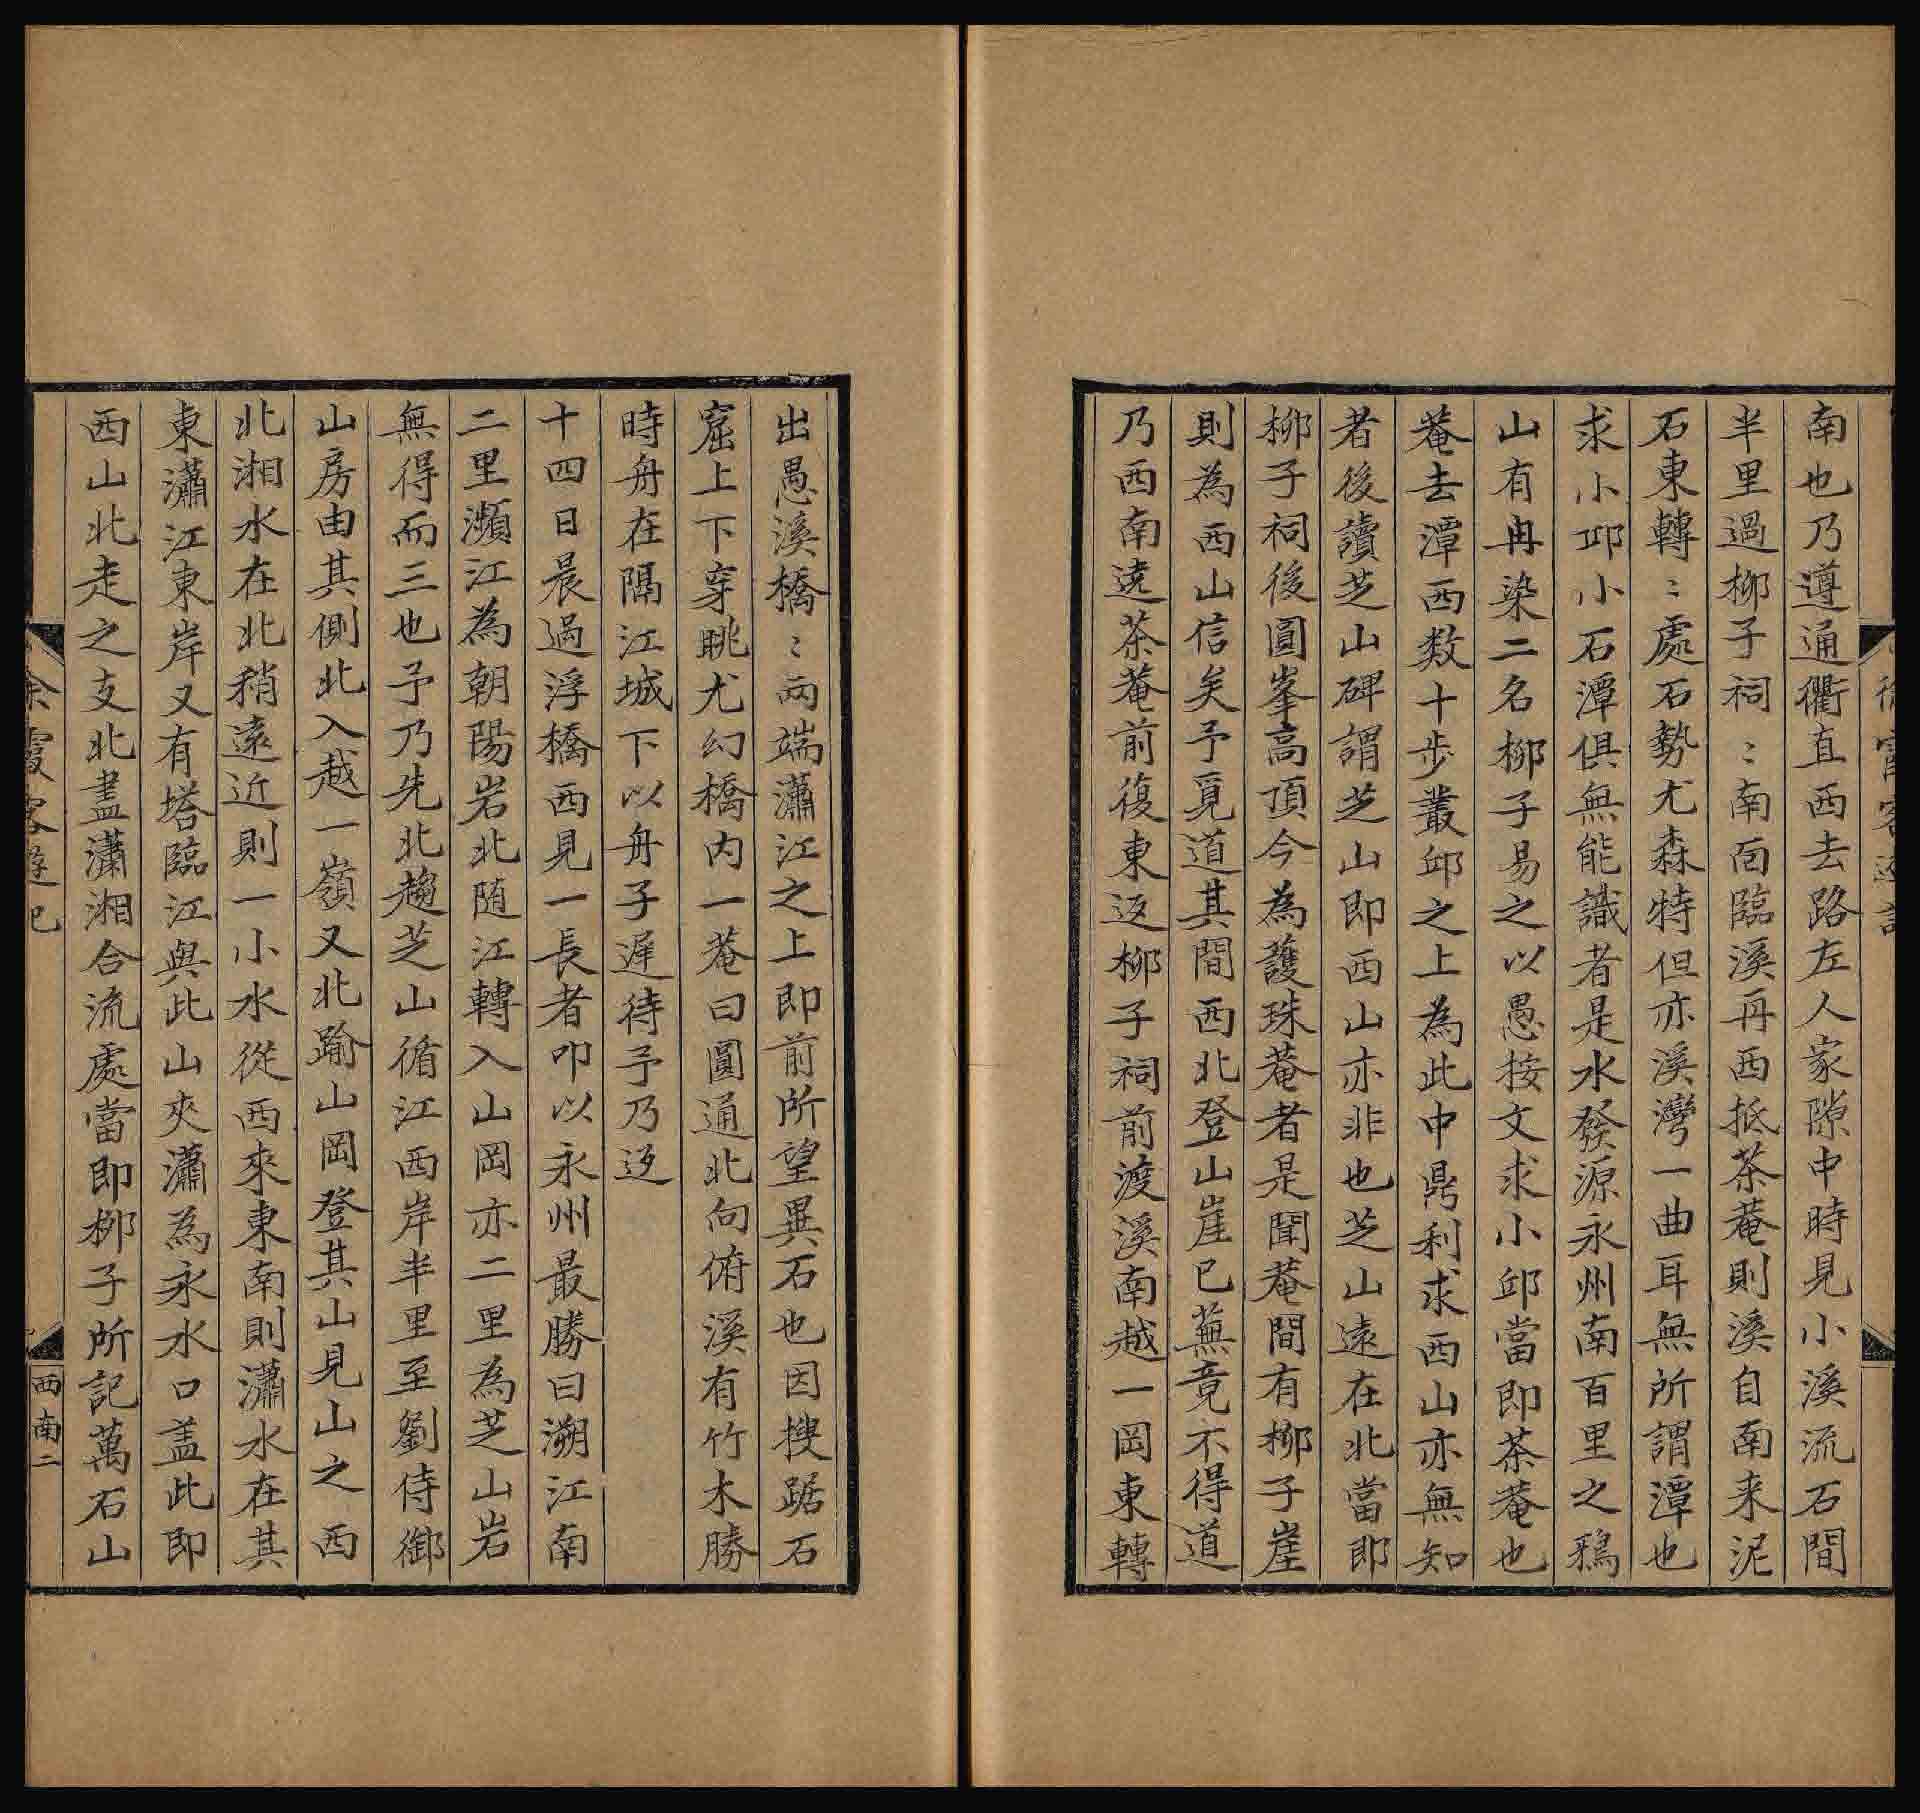 南也乃遵通衢直西去路左人家隙中時見小溪流石間
半里過柳子祠〻南面臨溪再西抵茶菴則溪自南来泥
石東轉〻處石勢尤森特但亦溪灣一曲耳無所謂潭也
求小邱小石潭俱無能識者是水發源永州南百里之鴉
山有冉染二名柳子易之以愚按文求小邱當即茶菴也
菴去潭西数十步叢邱之上為此中鼎利求西山亦無知
者後讀芝山碑謂芝山即西山亦非也芝山遠在北當即
柳子祠後圓峯高頂今為護珠菴者是聞菴間有柳子崖
則為西山信矣予覓道其間西北登山崖已蕪竟不得道
乃西南遶茶菴前復東返柳子祠前渡溪南越一岡東轉
出愚溪橋〻兩端瀟江之上即前所望異石也因搜踞石
窟上下穿眺尤幻橋内一菴曰圓通北向俯溪有竹木勝
時舟在隔江城下以舟子遲待予乃返
十四日晨過浮橋西見一長者叩以永州最勝曰溯江南
二里瀕江為朝陽岩北随江轉入山岡亦二里為芝山岩
無得而三也予乃先北趨芝山循江西岸半里至劉侍御
山房由其側北入越一嶺又北踰山岡登其山見山之西
北湘水在北稍遠近則一小水從西來東南則瀟水在其
東瀟江東岸又有塔臨江與此山夾瀟為永水口盖此即
西山北走之支北盡瀟湘合流處當即柳子所記萬石山
徐霞客遊記
西南二